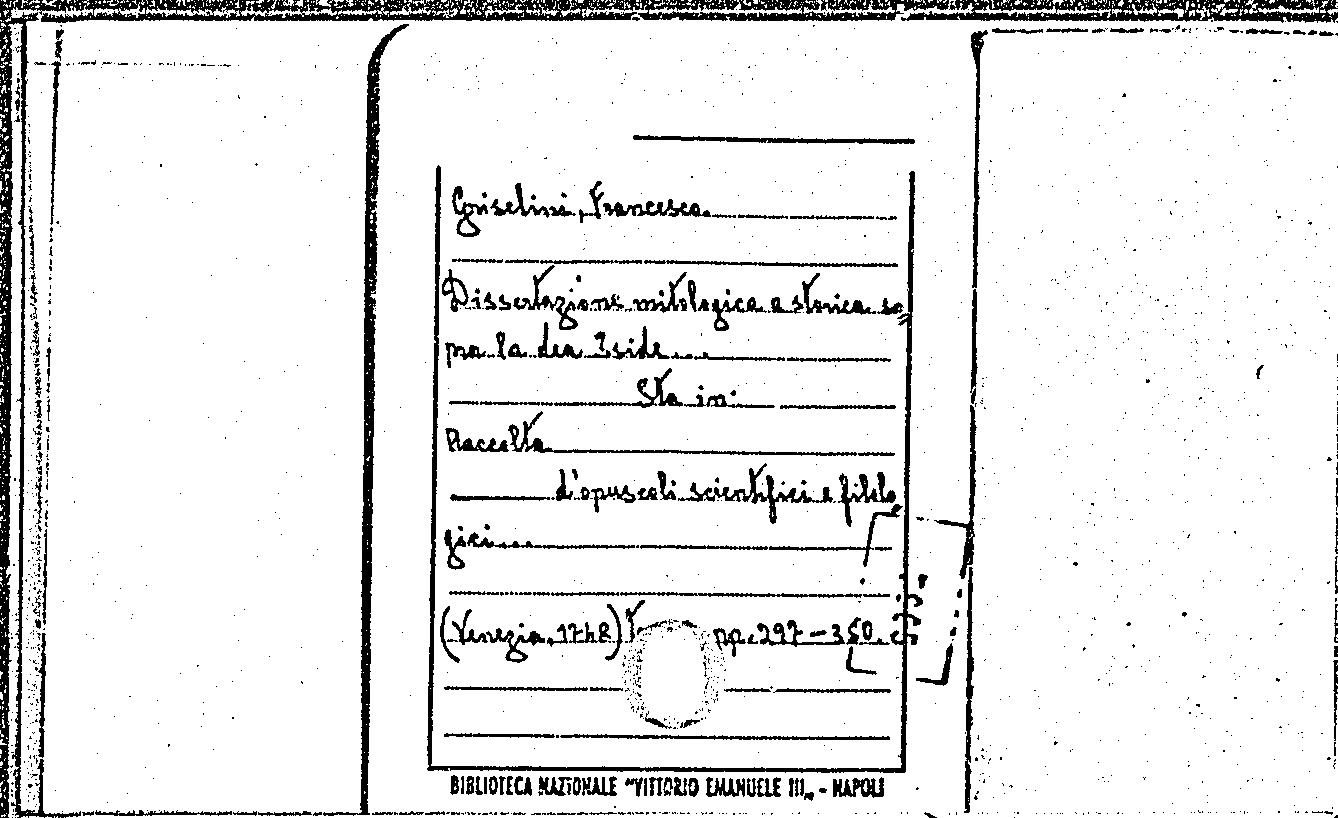 Griselini, Francesco
Dissertazione mitologica e storica so=
pra la dea Iside...
Sta in:
Raccolta
d'opuscoli scientifici e filolo
gici...
(Venezia, 1748) pp. 297-350.
BIBLIOTECA NAZIONALE "VITTORIO EMANUELE III„ - NAPOLI